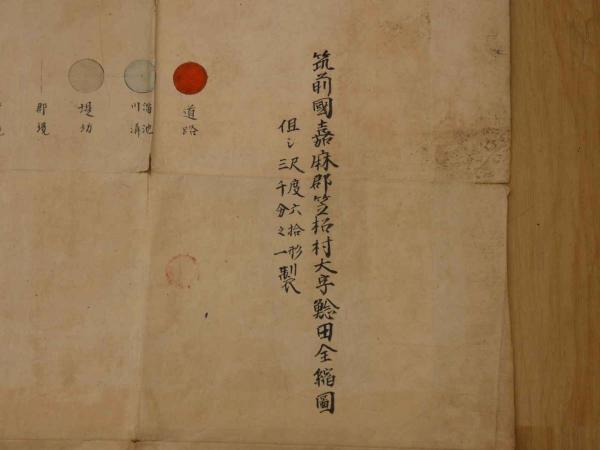 筑前國嘉麻郡笠松村大字鯰田全縮圖
但シ
尺度六拾形
三千分之一
製
道路
溜池
川溝
堤坊
郡境